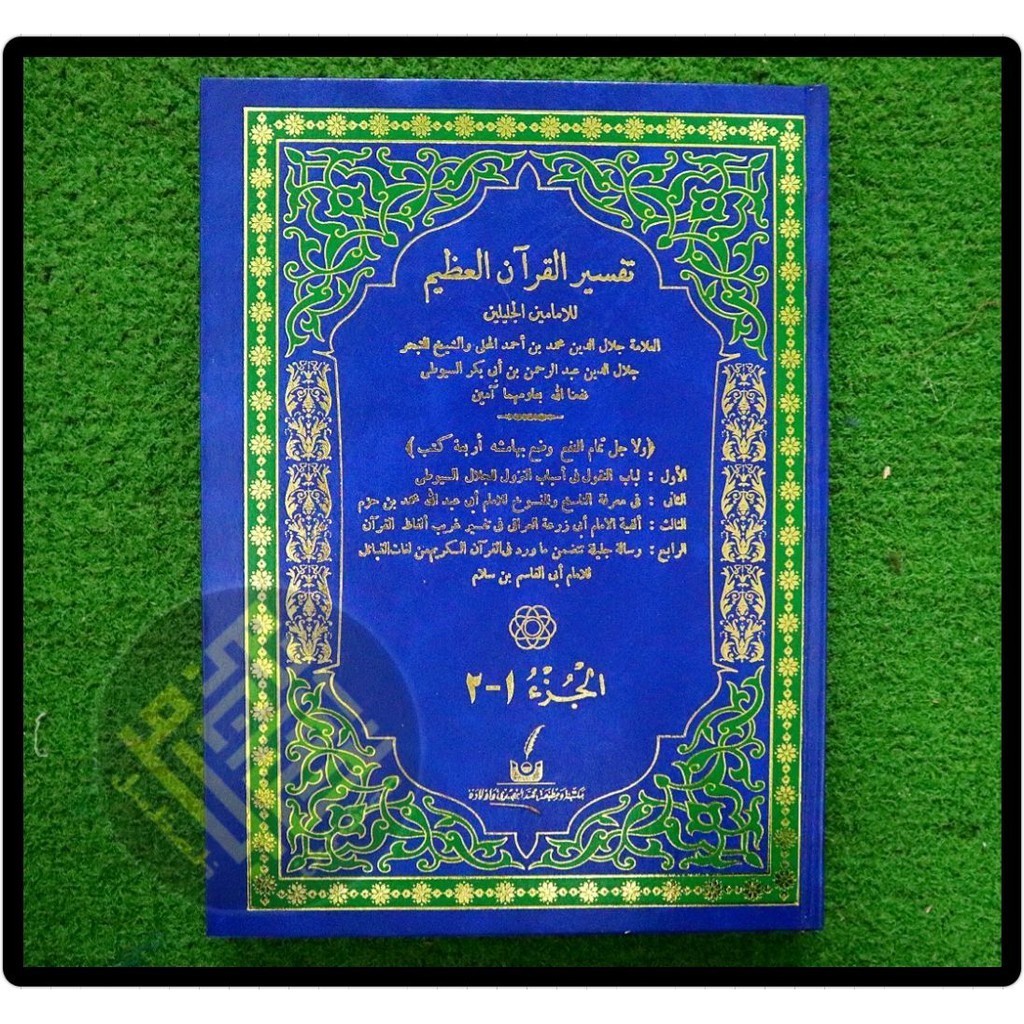 تفسير القرآن العظيم
للإمامين الجليلين
العلامة جلال الدين محمد بن أحمد المحلى والشيخ المتبحر
جلال الدين عبد الرحمن بن أبى بكر السيوطى
نفعنا الله بعلومهما آمين
﴿ولاجل تمام النفع وضع بهامشه أربعة كتب﴾
الأول : لباب النقول فى أسباب النزول للجلال السيوطى
الثانى : فى معرفة الناسخ والمنسوخ للامام أبى عبد الله محمد بن حزم
الثالث : ألفية الامام أبى زرعة العراقى فى تفسير غريب ألفاظ القرآن
الرابع : رسالة جليلة تتضمن ما ورد فى القرآن السكريم من لغات القبائل
للامام أبى القاسم بن سلام
الجُزْءُ ١-٢